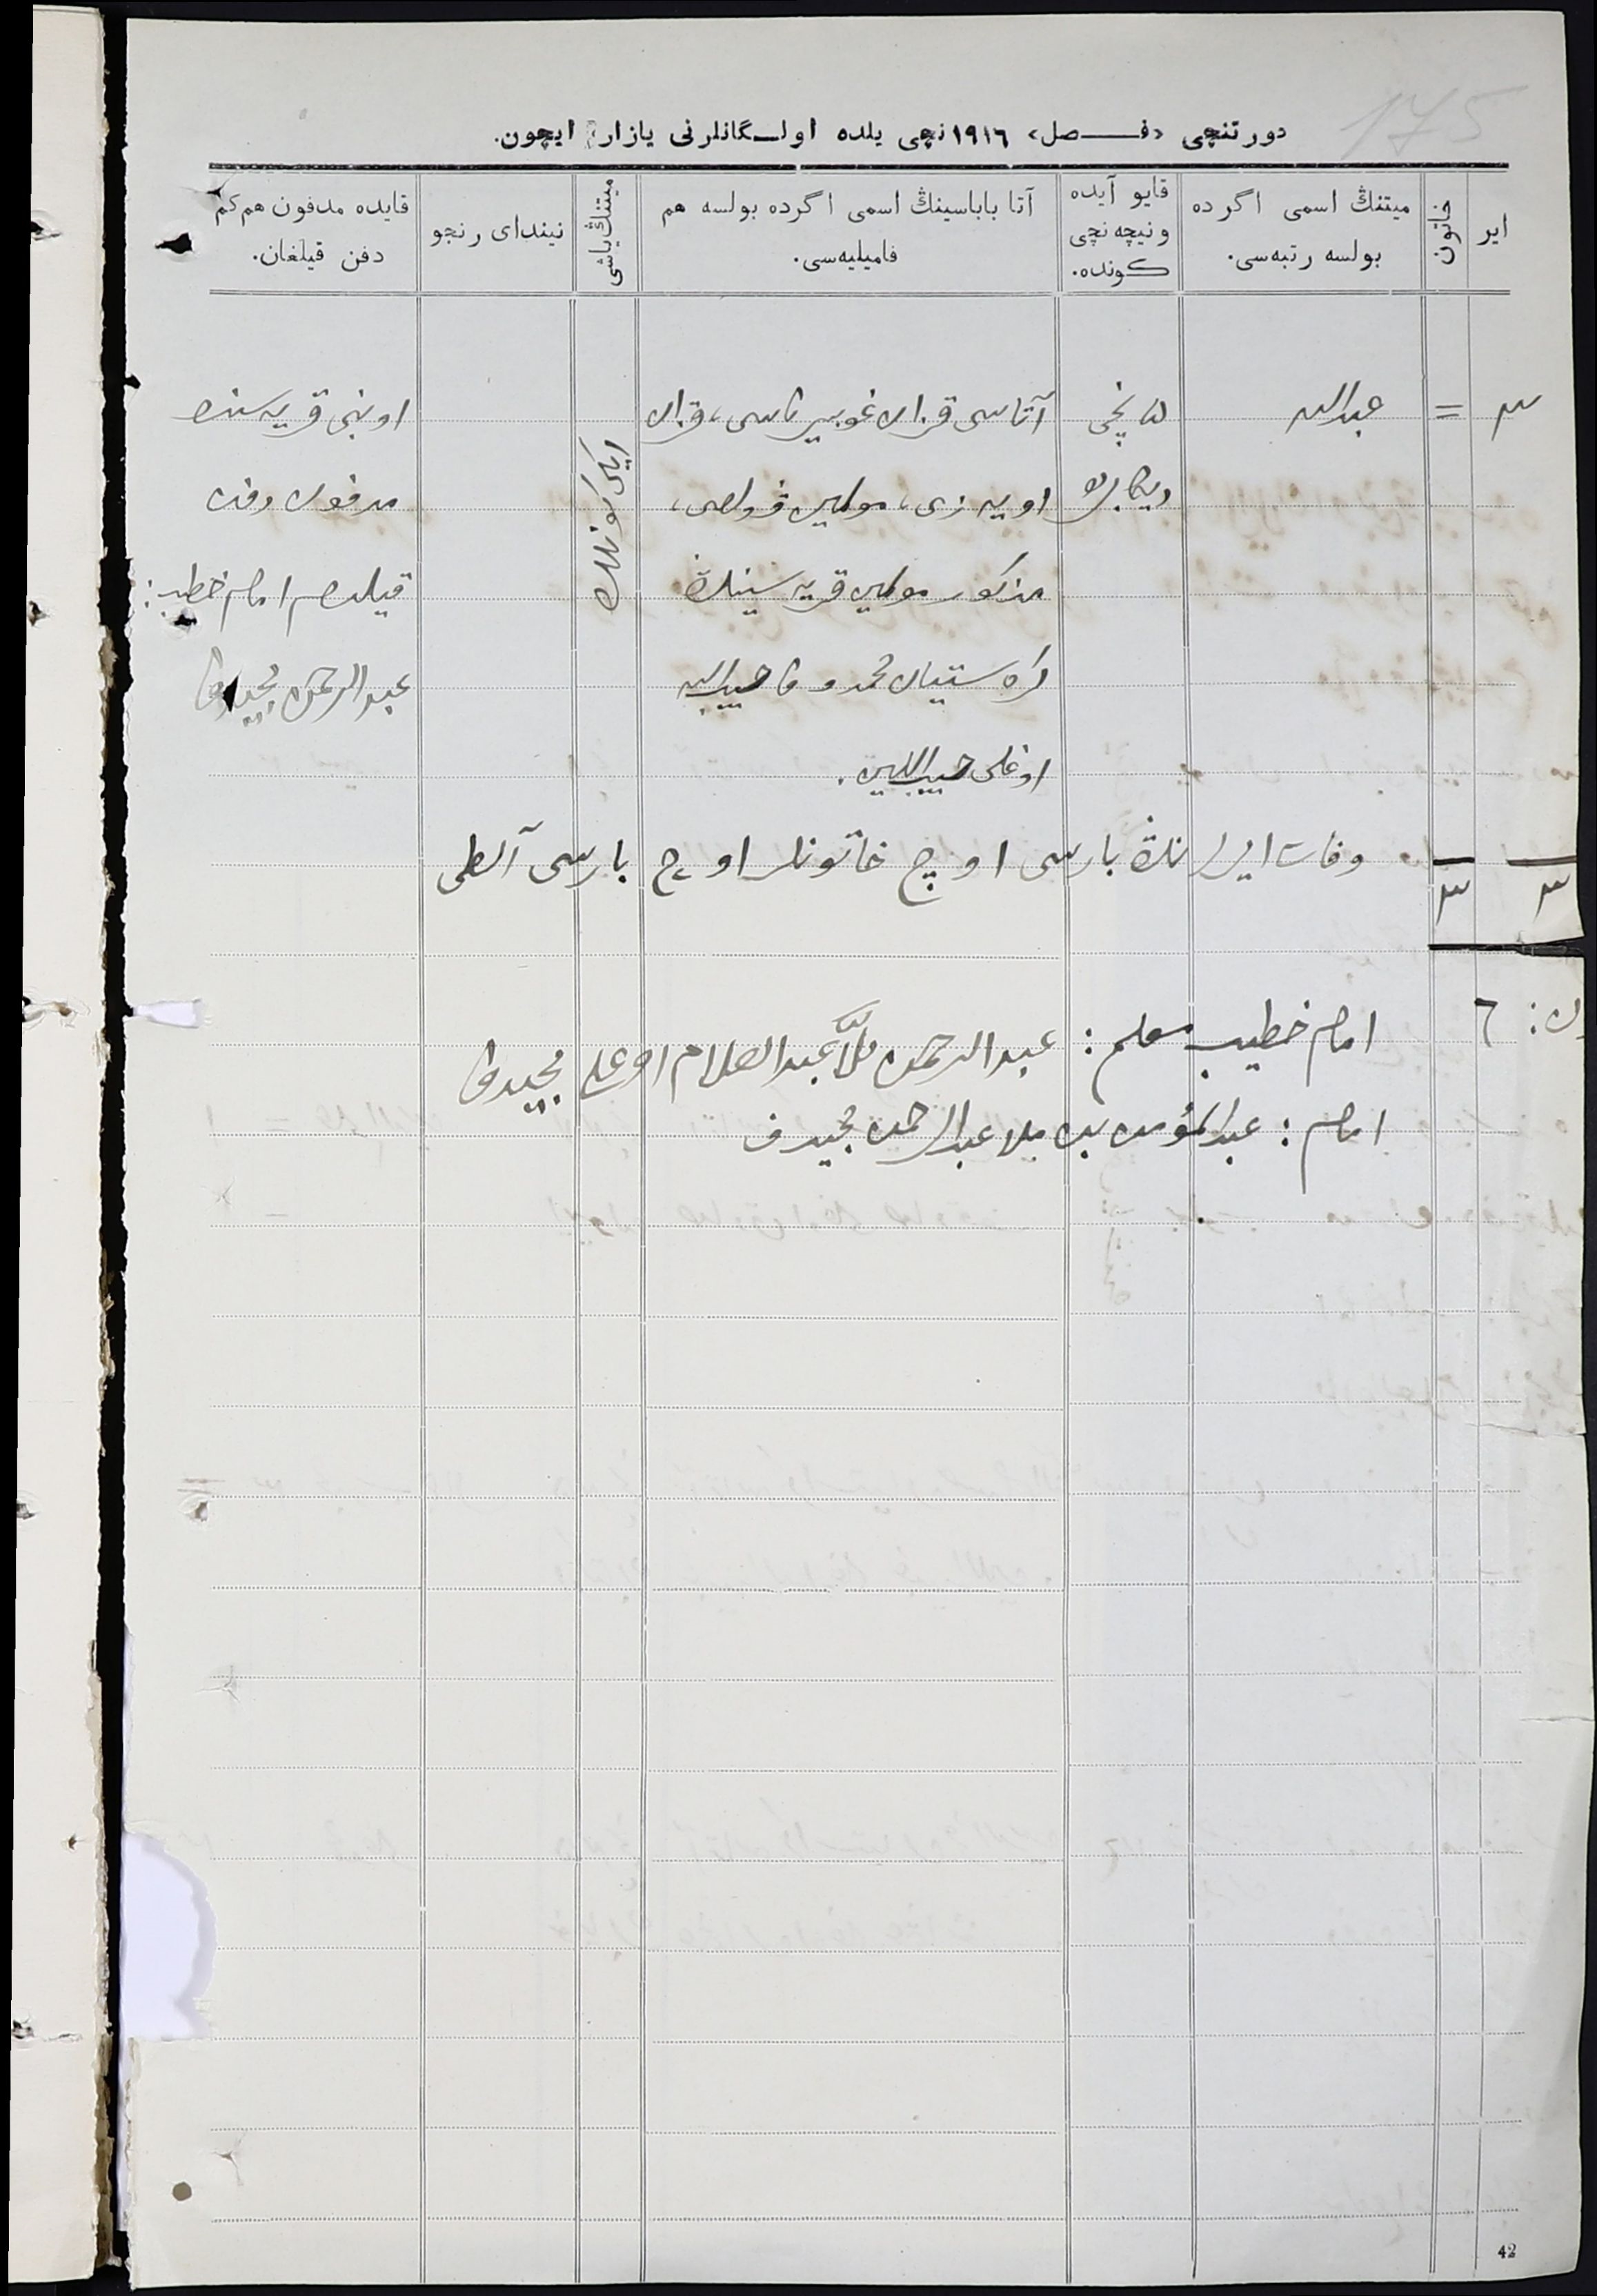 175
دورتنچی «فصل» ١٩١٦نچی یلده اولگانلرنی یازار ایچون.
ایر
خاتون
میتنڭ اسمی اگرده
بولسه رتبه‌سی.
قایو آیده
ونیچه نچی
کونده.
آتا باباسینڭ اسمی اگرده بولسه هم
فامیلیه‌سی.
میتنڭ یاشی
نیندای رنجو
قایده مدفون هم کم
دفن قیلغان.
٣ = عبدالله
٥ نچی
دیکابر
آتاسی قزان غوبیرناسی، قزان
اویه زی،
مذکور قریه سینڭ
کراستیان محمدوف حبیب الله
اوغلی حبیب اللهین.
ایکی کونلک
قریه سنده
مدفون دفن
قیلدم امام خطیب:
عبدالرحمن مجیدوف
٣ ٣ وفات ایرلرنڭ بارسی اوچ خاتونلر اوچ بارسی آلطی
٦
امام خطیب معلم: عبدالرحمن ملا عبدالسلام اوغلی مجیدوف
امام: عبدالمؤمن بن ملا عبدالرحمن مجیدف
42